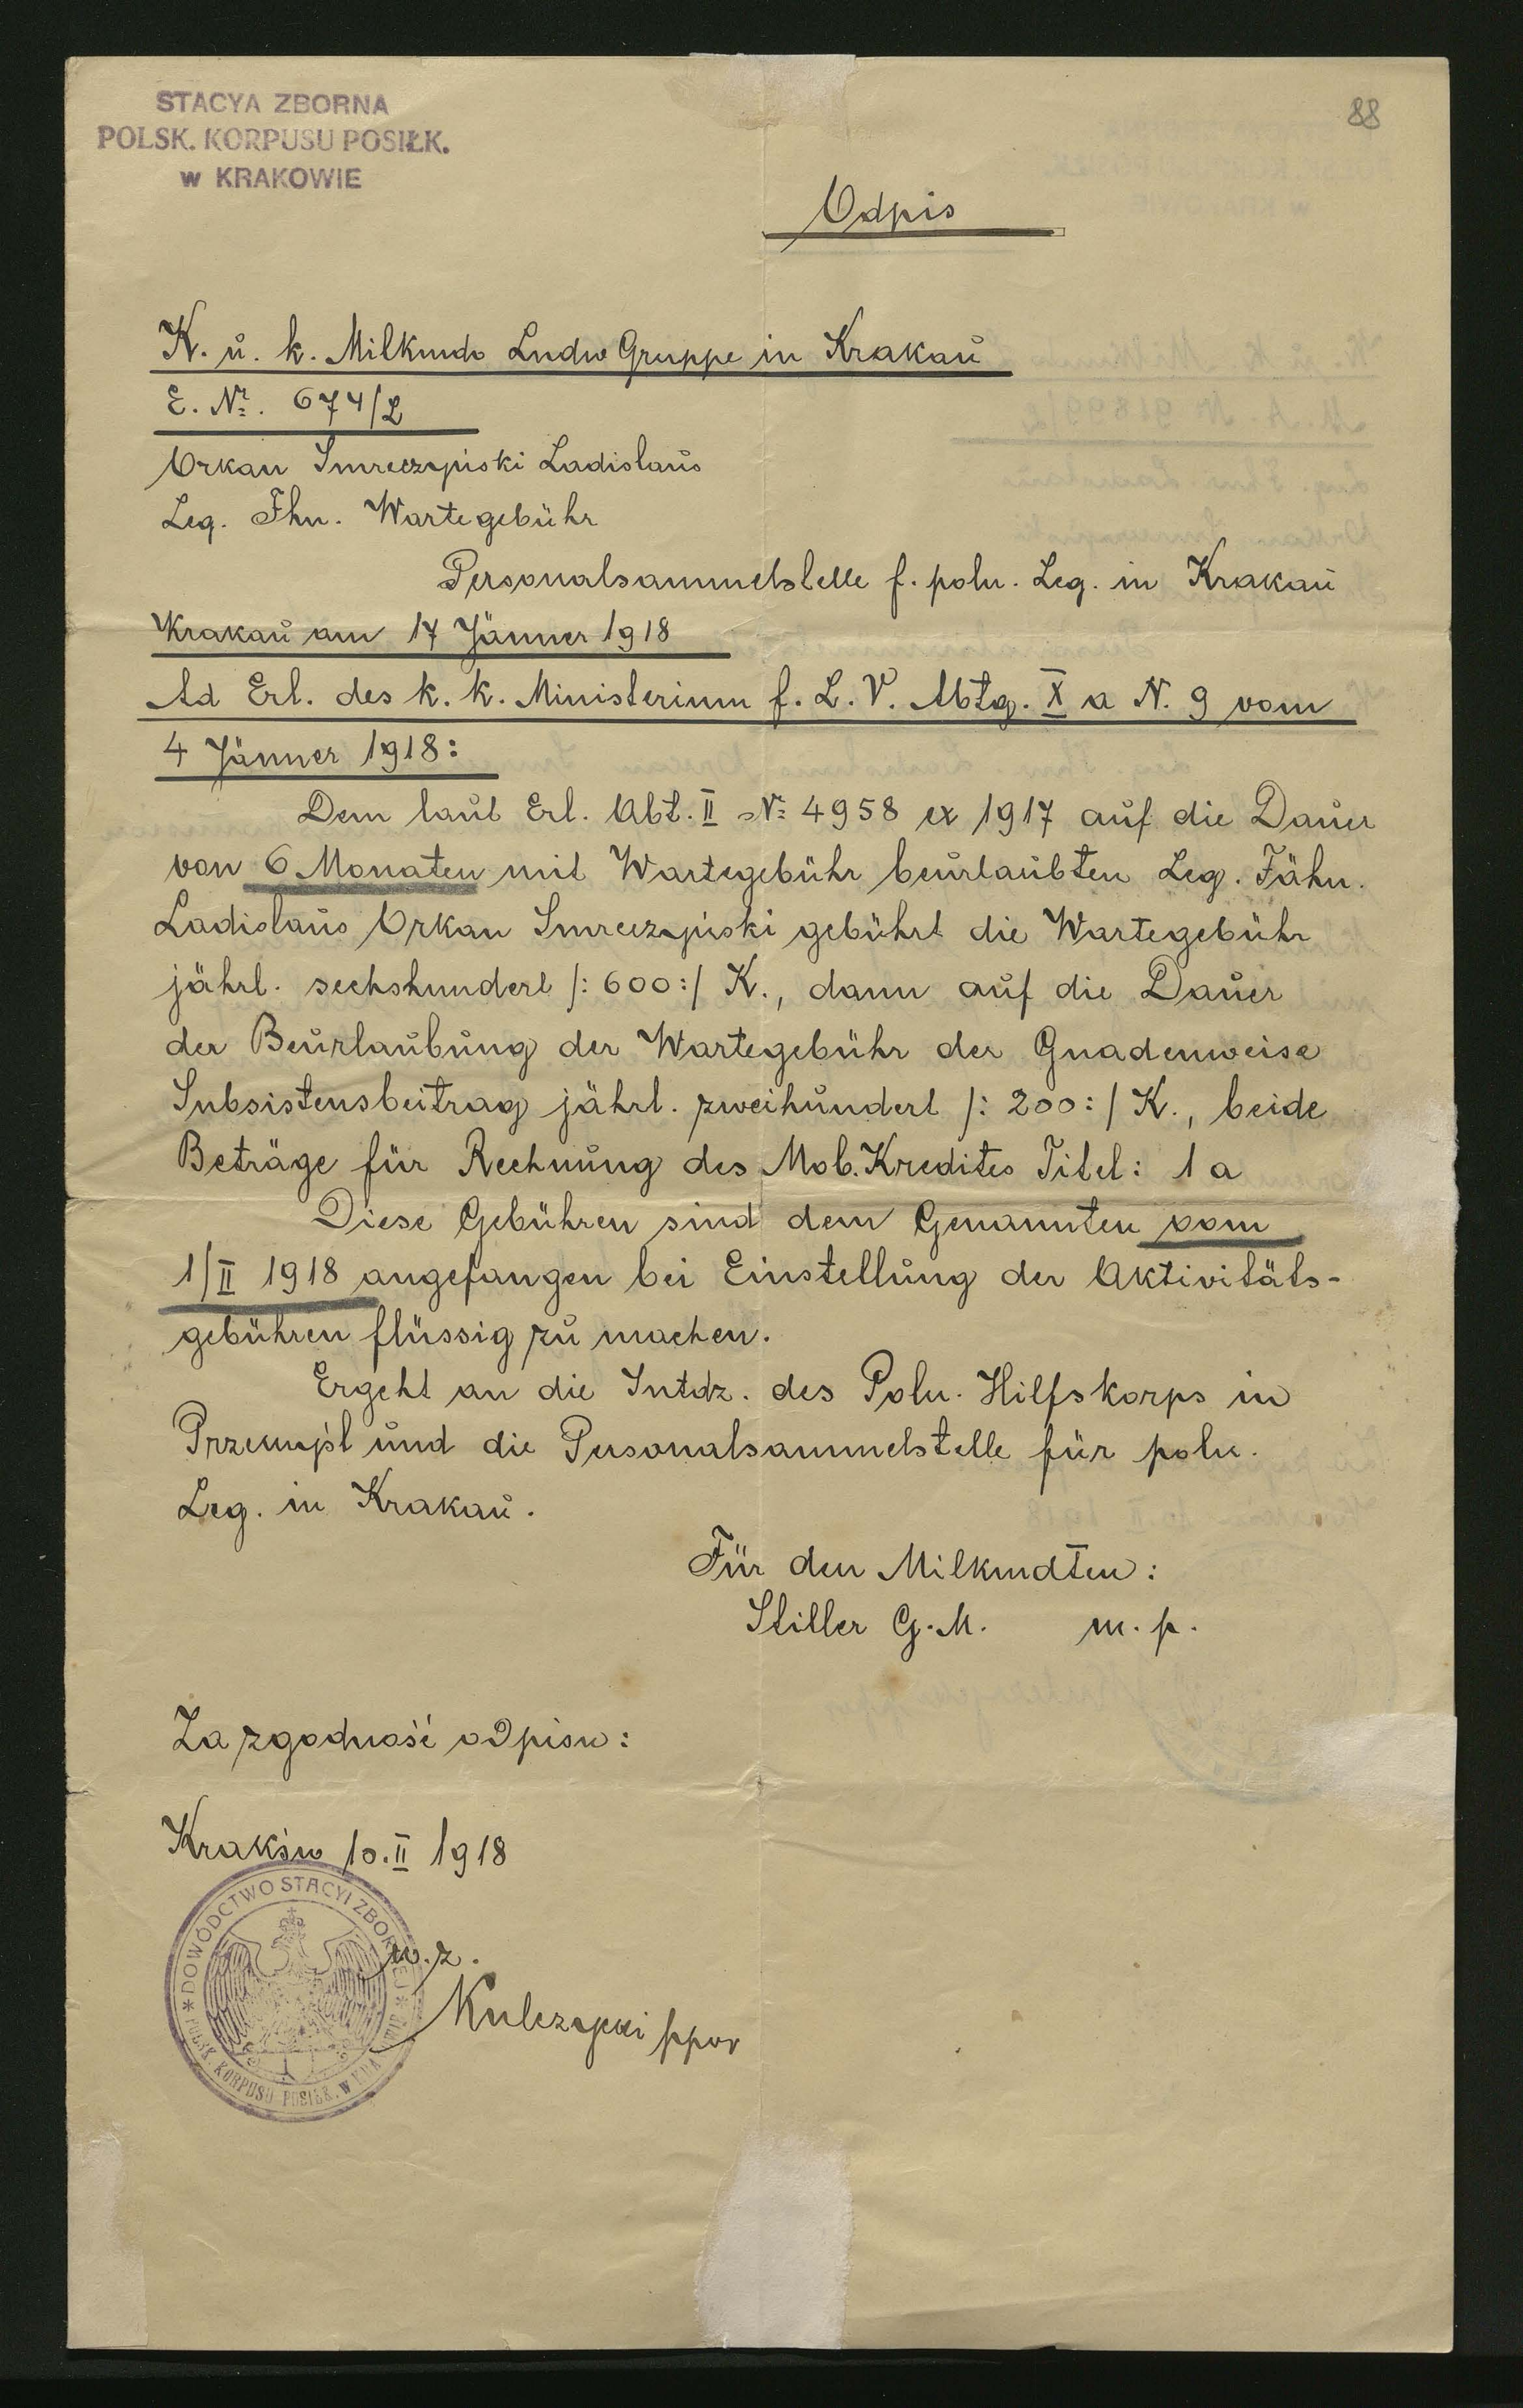 STACYA ZBORNA
POLSK. KORPUSU POSIŁK.
w KRAKOWIE
88
Odpis
K. u. k. Milkmdo Lndw Gruppe in Krakau
E. Nr. 674/L
Orkan Smreczyński Ladislaus
Leg. Fhn. Wartegebühr
Personalsammelstelle f. poln. Leg. in Krakau
Krakau am 17 Jänner 1918
Ad Erl. des k. k. Ministerium f. L. V. Abtg. X a N. 9 vom
4 Jänner 1918:
Dem laut Erl. Abt. II No 4958 ex 1917 auf die Dauer
von 6 Monaten mit Wartegebühr beurlaubten Leg. Fähn.
Ladislaus Orkan Smreczyński gebührt die Wartegebühr
jährl. sechshundert /: 600 :/ K., dann auf die Dauer
der Beurlaubung der Wartegebühr der Gnadenweise
Subsistensbeitrag jährl. zweihundert /: 200 :/ K., beide
Beträge für Rechnung des Mob. Kredites Titel: 1 a
Diese Gebühren sind dem Genannten vom
1/II 1918 angefangen bei Einstellung der Aktivitäts-
gebühren flüssig zu machen.
Ergeht an die Intdz. des Poln. Hilfskorps in
Przemyśl und die Personalsammelstelle für poln.
Leg. in Krakau.
Für den Milkmdten:
Stiller G. M. m. p.
Za zgodność odpisu:
Kraków 10. II 1918
DOWÓDCTWO STACYI ZBORNEJ
POLSK. KORPUSU POSIŁK. W KRAKOWIE
w. z.
Kulczycki ppor